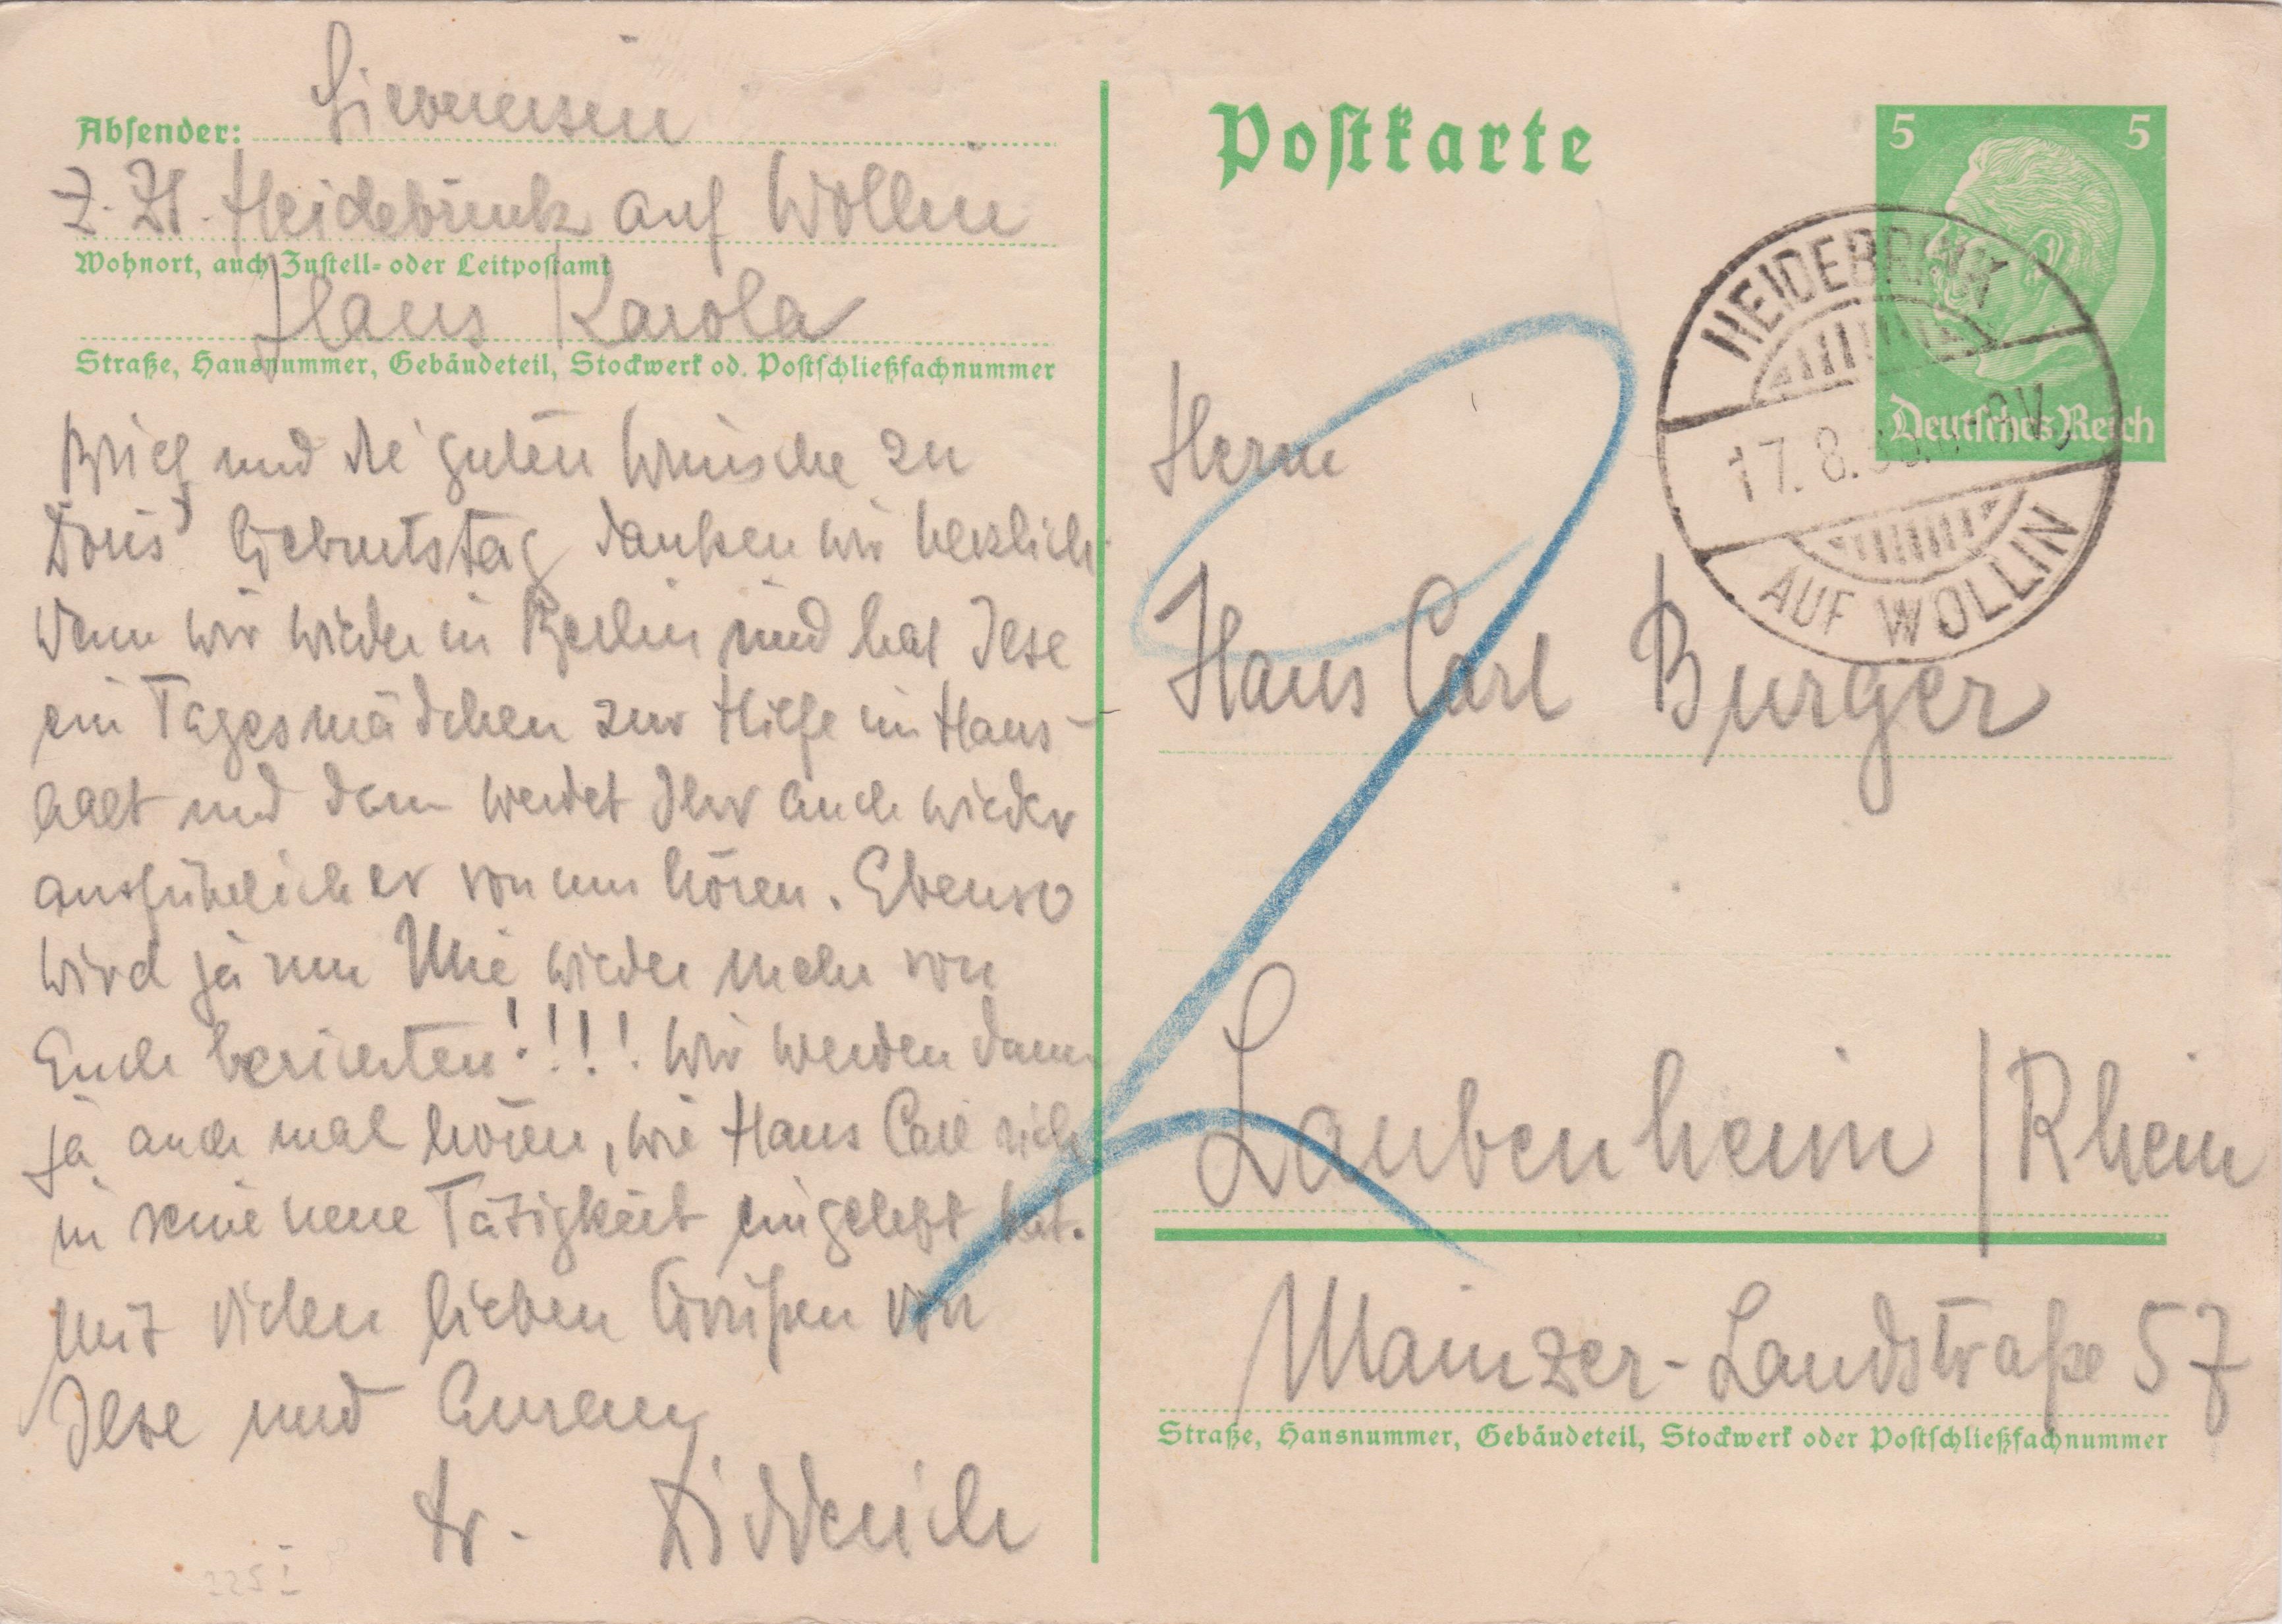 Absender:
z. Zt. Heidebrink auf Wollin
Wohnort, auch Zustell- oder Leitpostamt
Haus Karola
Straße, Hausnummer, Gebäudeteil, Stockwerk od. Postschließfachnummer
Brief und die guten Wünsche zu
Geburtstag danken wir herzlich.
Wenn wir wieder in Berlin sind hat Ilse
ein Tagesmädchen zur Hilfe im Haus-
halt und dann werdet Ihr auch wieder
ausführlicher von uns hören. Ebenso
wird ja nun wieder mehr von
Euch berichten!!!! Wir werden dann
ja auch mal hören, wie Hans Carl sich
in seine neue Tätigkeit eingelebt hat.
Mit vielen lieben Grüßen von
Ilse und Eurem
Postkarte
5 5
Deutsches Reich
HEIDEBRINK
17.8.
AUF WOLLIN
Herrn
Hans Carl Burger
Laubenheim / Rhein
Mainzer-Landstraße 57
Straße, Hausnummer, Gebäudeteil, Stockwerk oder Postschließfachnummer